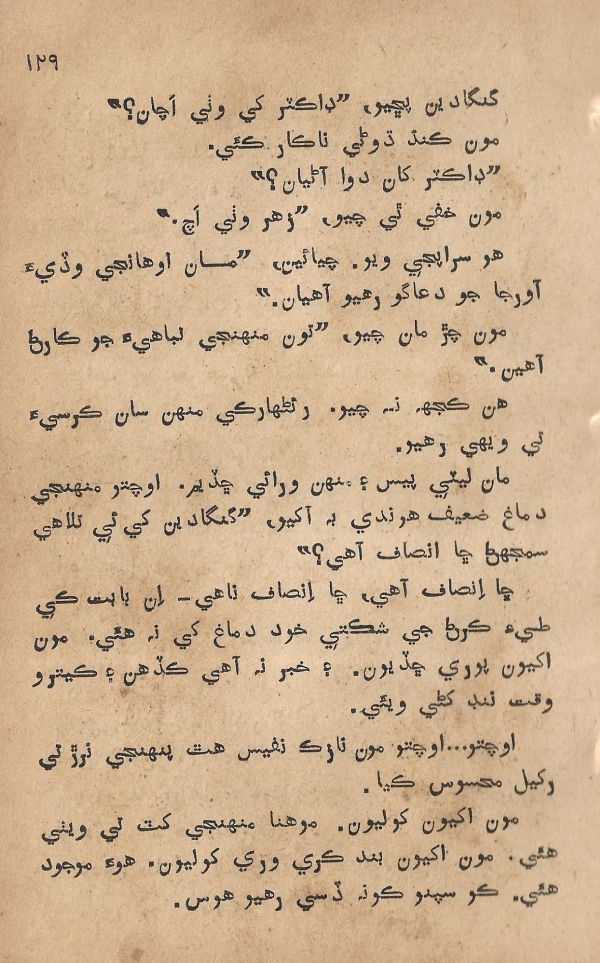 ١٢٩
گنگادين پڇيو، ”ڊاڪٽر کي وٺي اَچان؟“
مون ڪنڌ ڌوڻي ناڪار ڪئي.
”ڊاڪٽر کان دوا آڻيان؟“
مون خفي ٿي چيو، ”زهر وٺي اَچ.“
هو سراپجي ويو. چيائين، ”مـــان اوهانجي وڏيءَ
آورجا جو دعاگو رهيو آهيان.“
مون چڙ مان چيو، ”تون منهنجي تباهيءَ جو ڪارڻ
آهين.“
هن ڪجهہ نہ چيو. رئڻهارڪي منهن سان ڪرسيءَ
تي ويهي رهيو.
مان ليٽي پيس ۽ منهن ورائي ڇڏيم. اوچتو منهنجي
دماغ ضعيف هوندي بہ آکيو، ”گنگادين کي ئي تلاهي
سمجهڻ ڇا انصاف آهي؟“
ڇا اِنصاف آهي، ڇا اِنصاف ناهي— اِن بابت ڪي
طيءَ ڪرڻ جي شڪتي خود دماغ کي نہ هئي. مون
اکيون پوري ڇڏيون. ۽ خبر نہ آهي ڪڏهن ۽ ڪيترو
وقت ننڊ کڻي ويئي.
اوچتو...اوچتو مون نازڪ نفيس هٿ پنهنجي نرڙ تي
رکيل محسوس ڪيا.
مون اکيون کوليون. موهنا منهنجي کٽ تي ويٺي
هئي. مون اکيون بند ڪري وري کوليون. هوءَ موجود
هئي. ڪو سپنو ڪونہ ڏسي رهيو هوس.